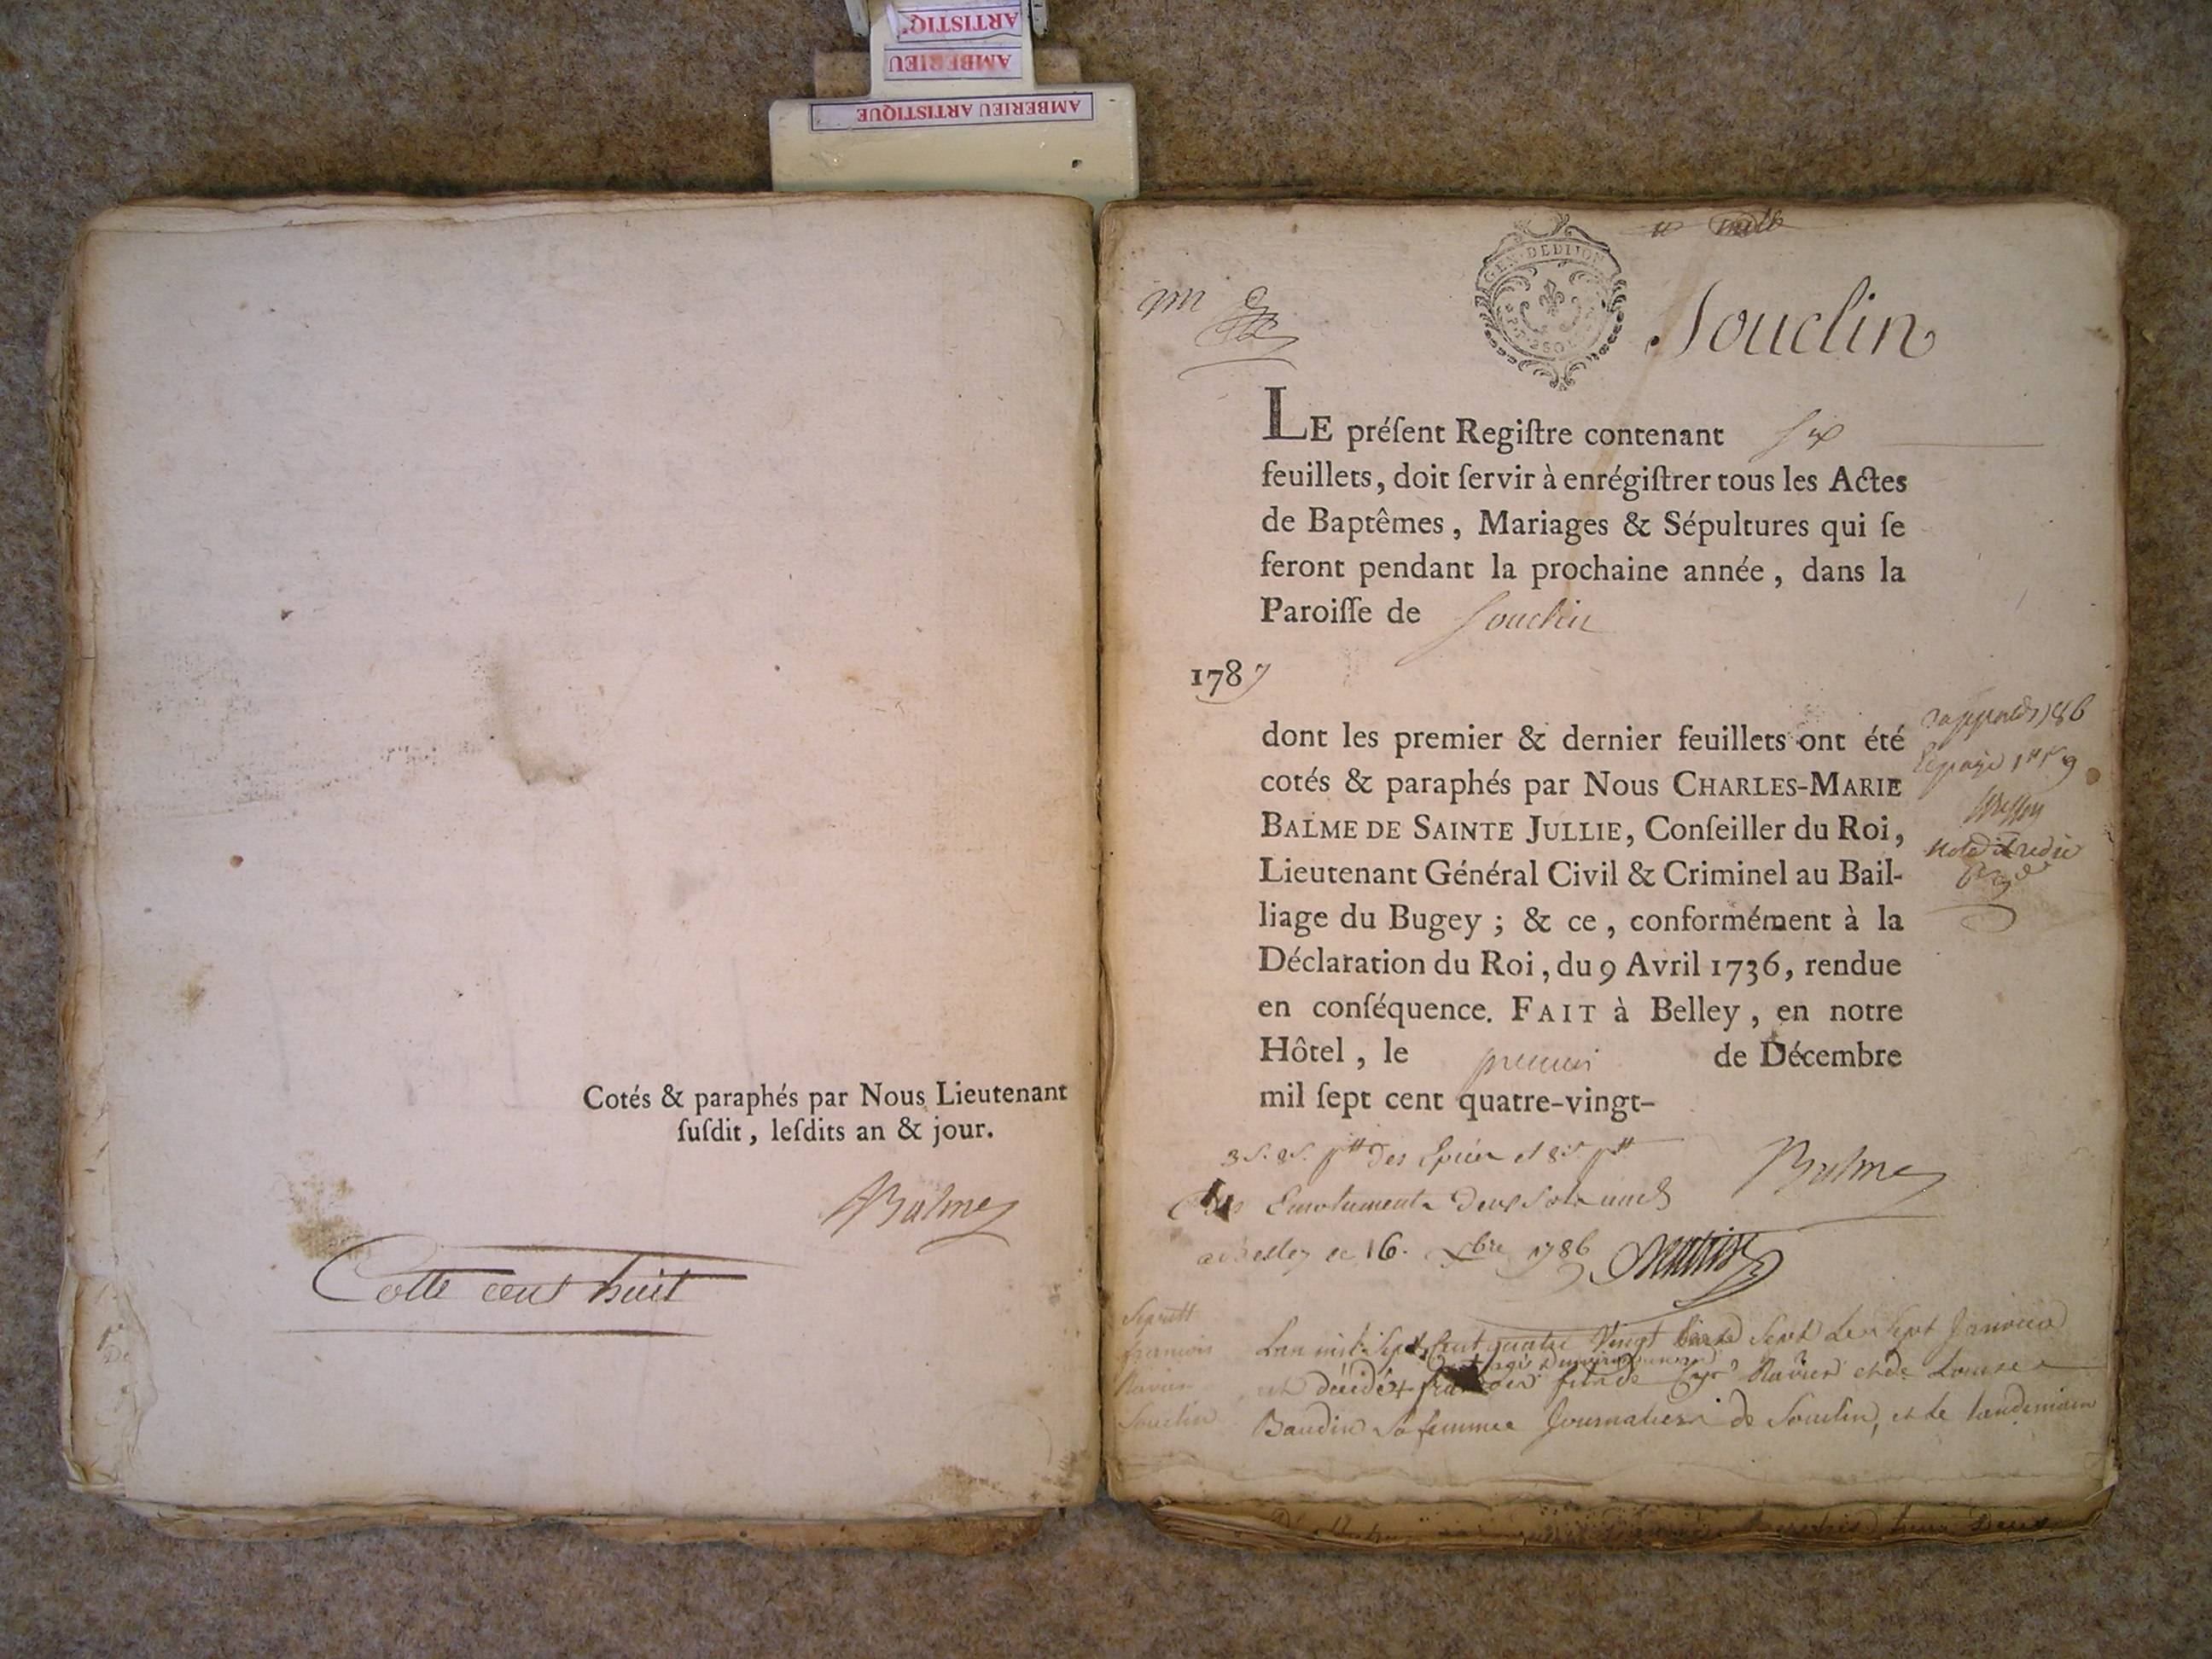 ARTISTIQ
AMBERIEU
AMBERIEU ARTISTIQUE
Cotés & paraphés par Nous Lieutenant
ſuſdit, leſdits an & jour.
Balme
Cotte cent huit
GEN. DE DIJON
Souclin
LE préſent Regiſtre contenant six
feuillets, doit ſervir à enrégiſtrer tous les Actes
de Baptêmes, Mariages & Sépultures qui ſe
feront pendant la prochaine année, dans la
Paroiſſe de Souclin
1787
dont les premier & dernier feuillets ont été
cotés & paraphés par Nous CHARLES-MARIE
BALME DE SAINTE JULLIE, Conſeiller du Roi,
Lieutenant Général Civil & Criminel au Bail-
liage du Bugey; & ce, conformément à la
Déclaration du Roi, du 9 Avril 1736, rendue
en conſéquence. FAIT à Belley, en notre
Hôtel, le premier de Décembre
mil ſept cent quatre-vingt-
Balme
a Belley le 16. Xbre 1786
francois
Ravier
Souclin
Lan mil sept cent quatre vingt sept le sept Janvier
est décédé fils de Ravier et de Louise
Baudin sa femme Journaliers de Souclin, et le lendemain